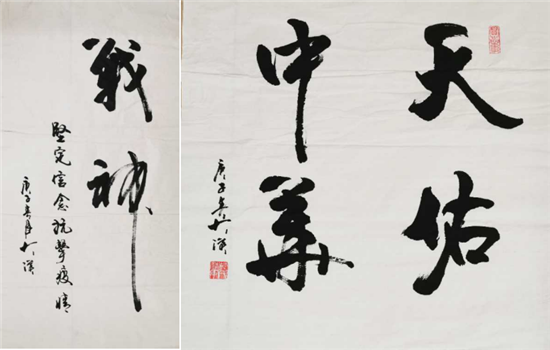 戰神
堅定信念抗擊疫情
庚子春月於漢
天佑
中華
庚子春於漢